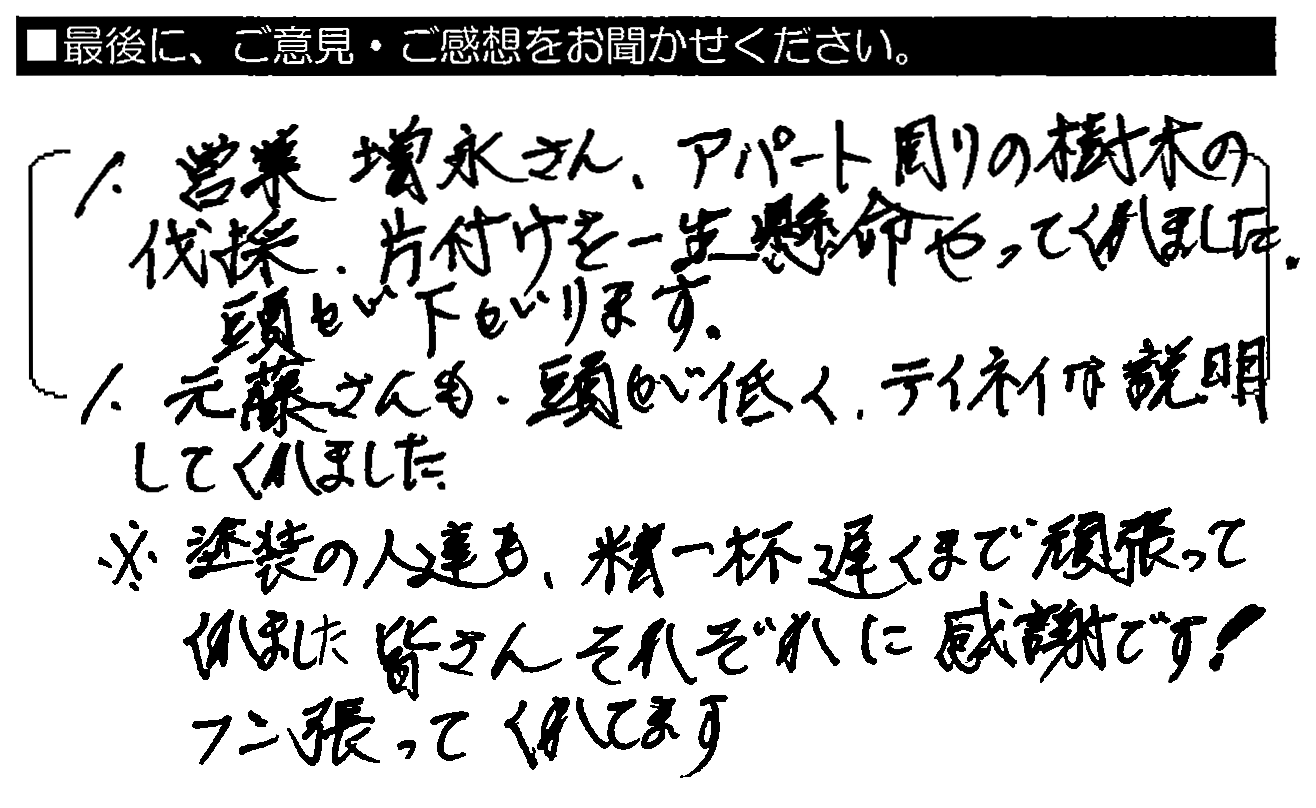 ■最後に、ご意見・ご感想をお聞かせください。
1. 営業 増永さん、アパート周りの樹木の
伐採、片付けを一生懸命やってくれました。
頭が下がります。
1. 元藤さんも、頭が低く、テイネイな説明
してくれました
※ 塗装の人達も、精一杯遅くまで頑張って
くれました 皆さんそれぞれに感謝です!
フン張ってくれてます